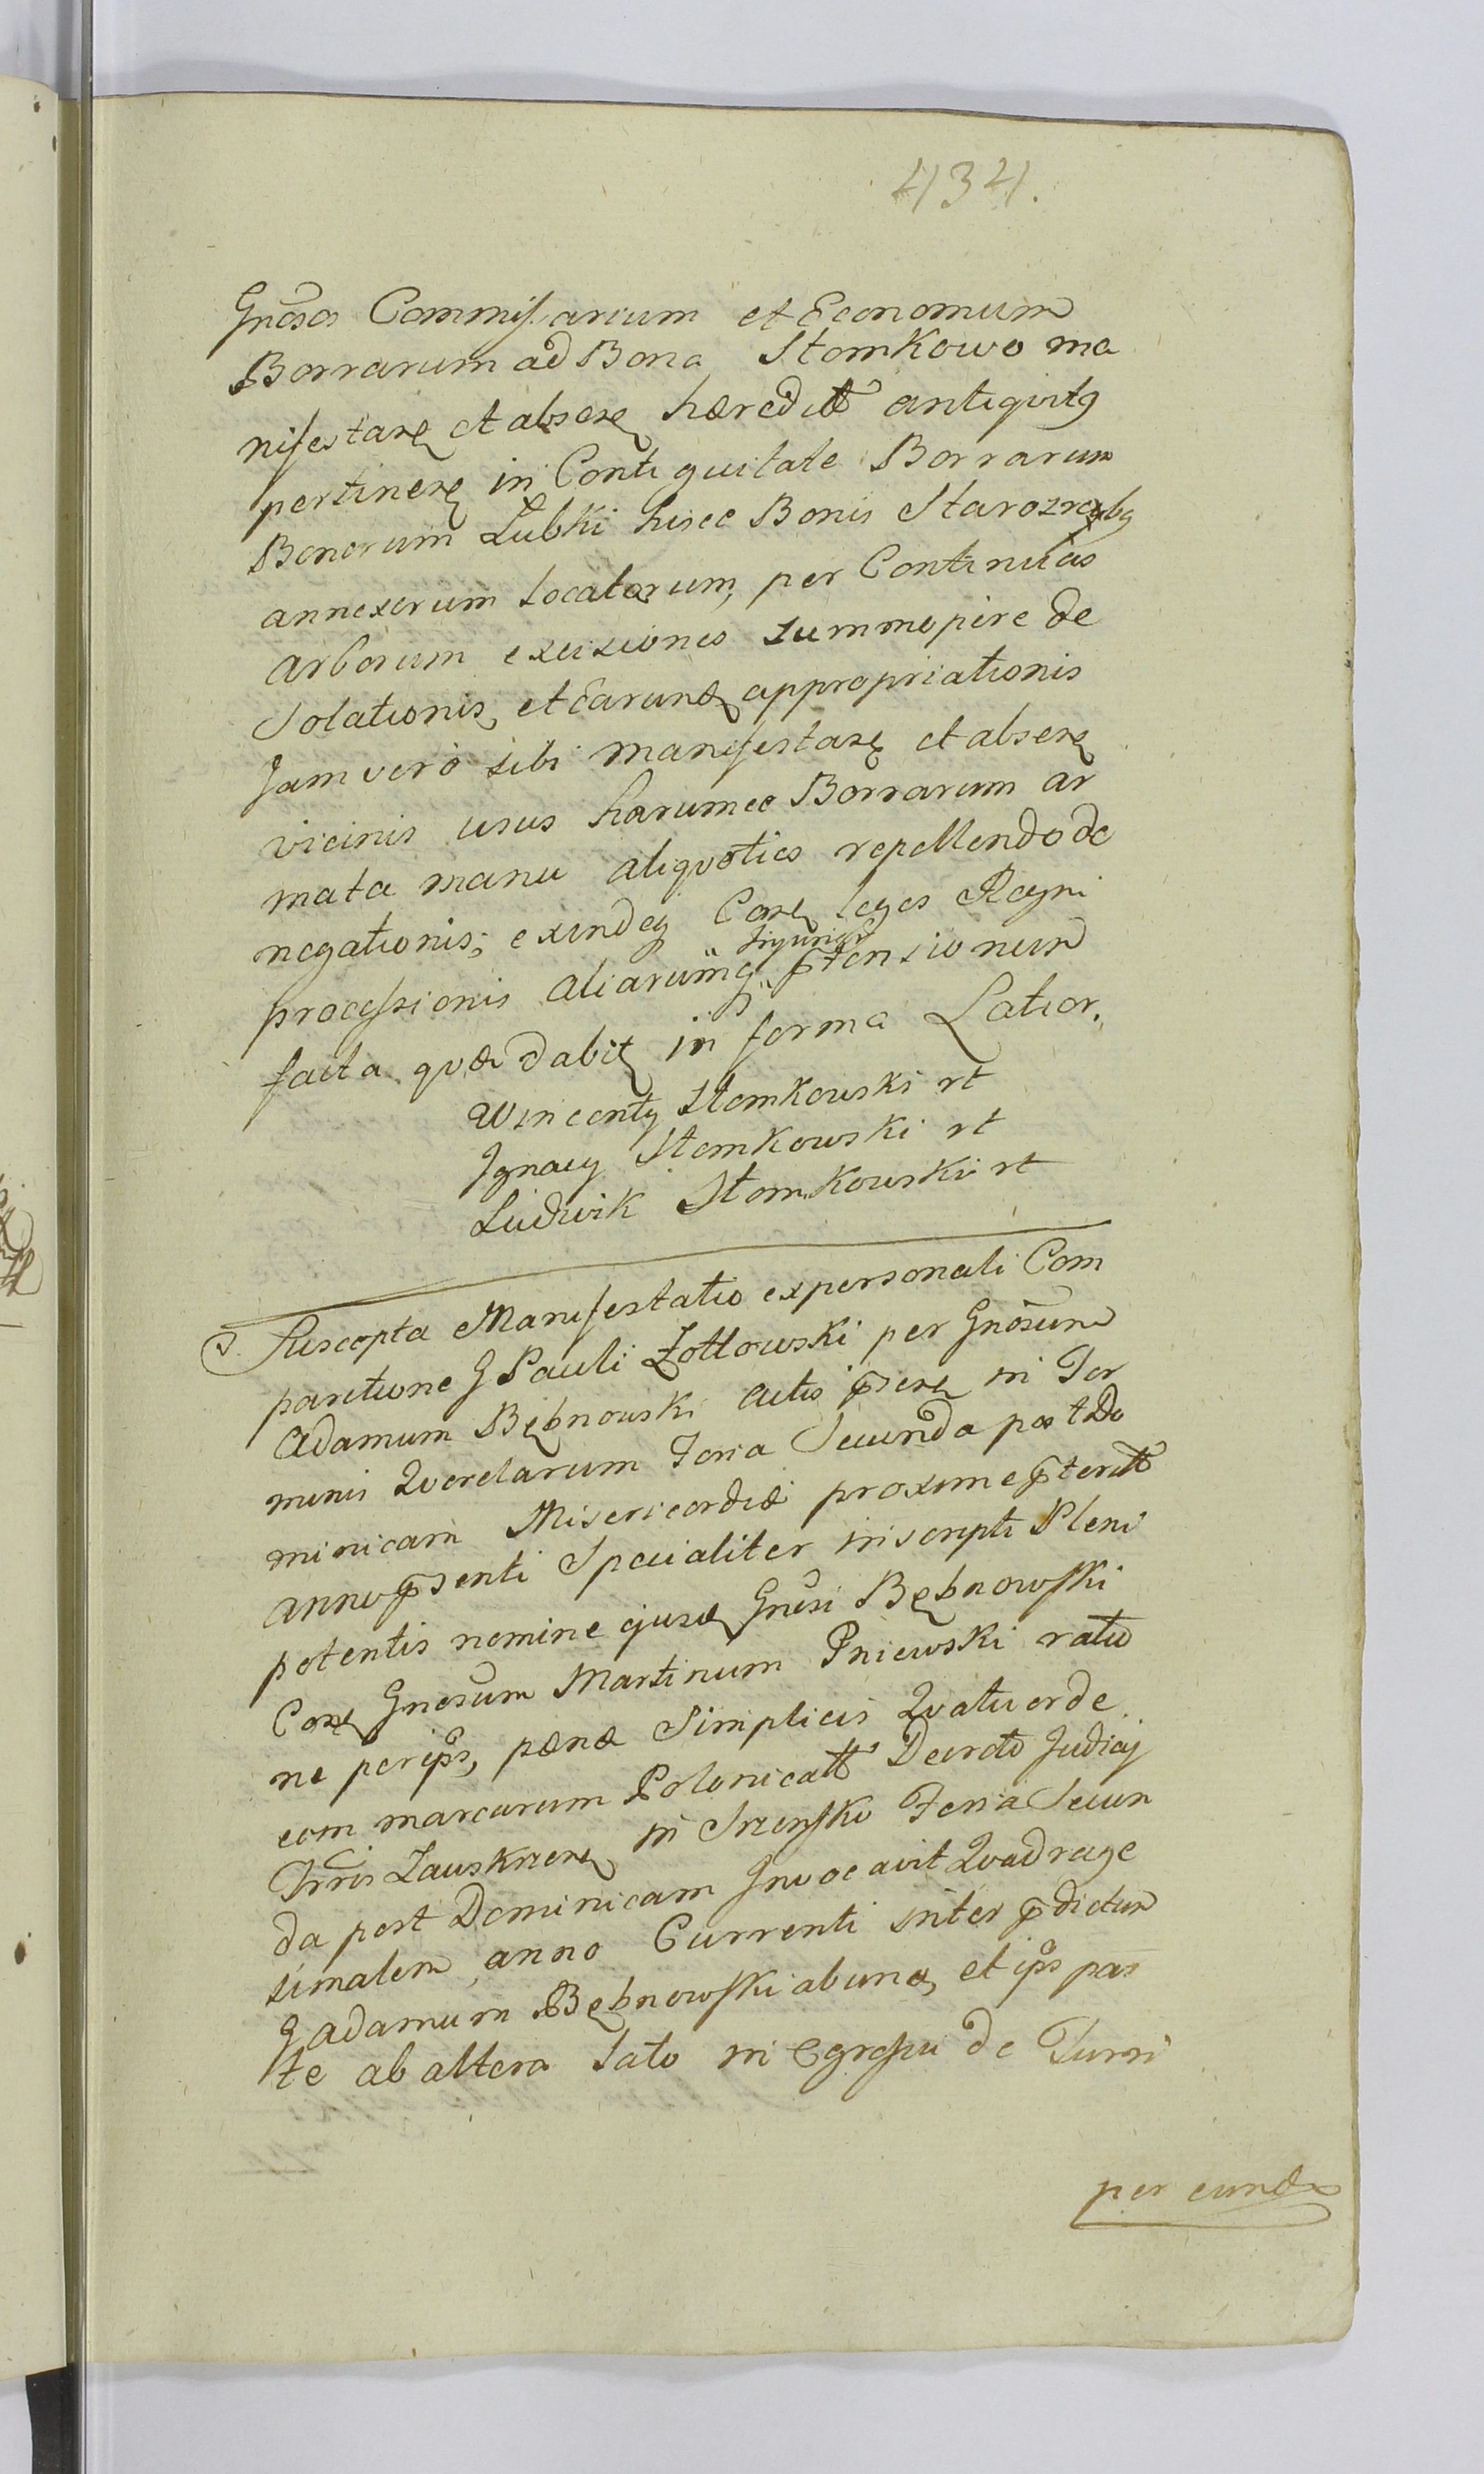 434.
Gnosos Commissarium et Economum
Borrarum ad Bona Słomkowo ma
nifestare et absere hæredit antiqvitq
pertinere in Contiguitate Borrarum
Bonorum Lubki hisce Bonis Starozrebq
annexorum locatarum, per Continuas
arborum excisiones summopere de
solationis, et Earund appropriationis
Jam vero sibi manifestare et absere
vicinis usus harumce Borrarum ar
mata manu aliqvoties repellendo de
negationis; exindeq Cone leges Regni
processionis aliarumq figuriæ
ptensionum
facta qvæ dabit in forma Latior.
Wincenty Słomkowski rt
Ignacy Słomkowski rt
Ludwik Słomkowski rt
S. Suscepta Manifestatio ex personali Com
paritione G Pauli Zołtowski per Gnosum
Adamum Bębnowski actis psere in Ter
minis Qverelarum Feria Secunda post Do
minicam Misericordiæ proxime pterit
anno psenti Specialiter inscripti Pleni
potentis nomine ejusd Gnosi Bębnowski
Cone Gnosum Martinum Pniewski ratio
ne per ips, pænæ Simplicis Qvatuorde
cem marcarum Polonicalt Decreto Judicij
Trris Zauskrzen in Srzensko Feria Secun
da post Dominicam Invocavit Qvadrage
simalem anno Currenti inter pdictum
G Adamum Bębnowski ab una, et ips par
te ab altera lato in Egressu de Turri
per eund